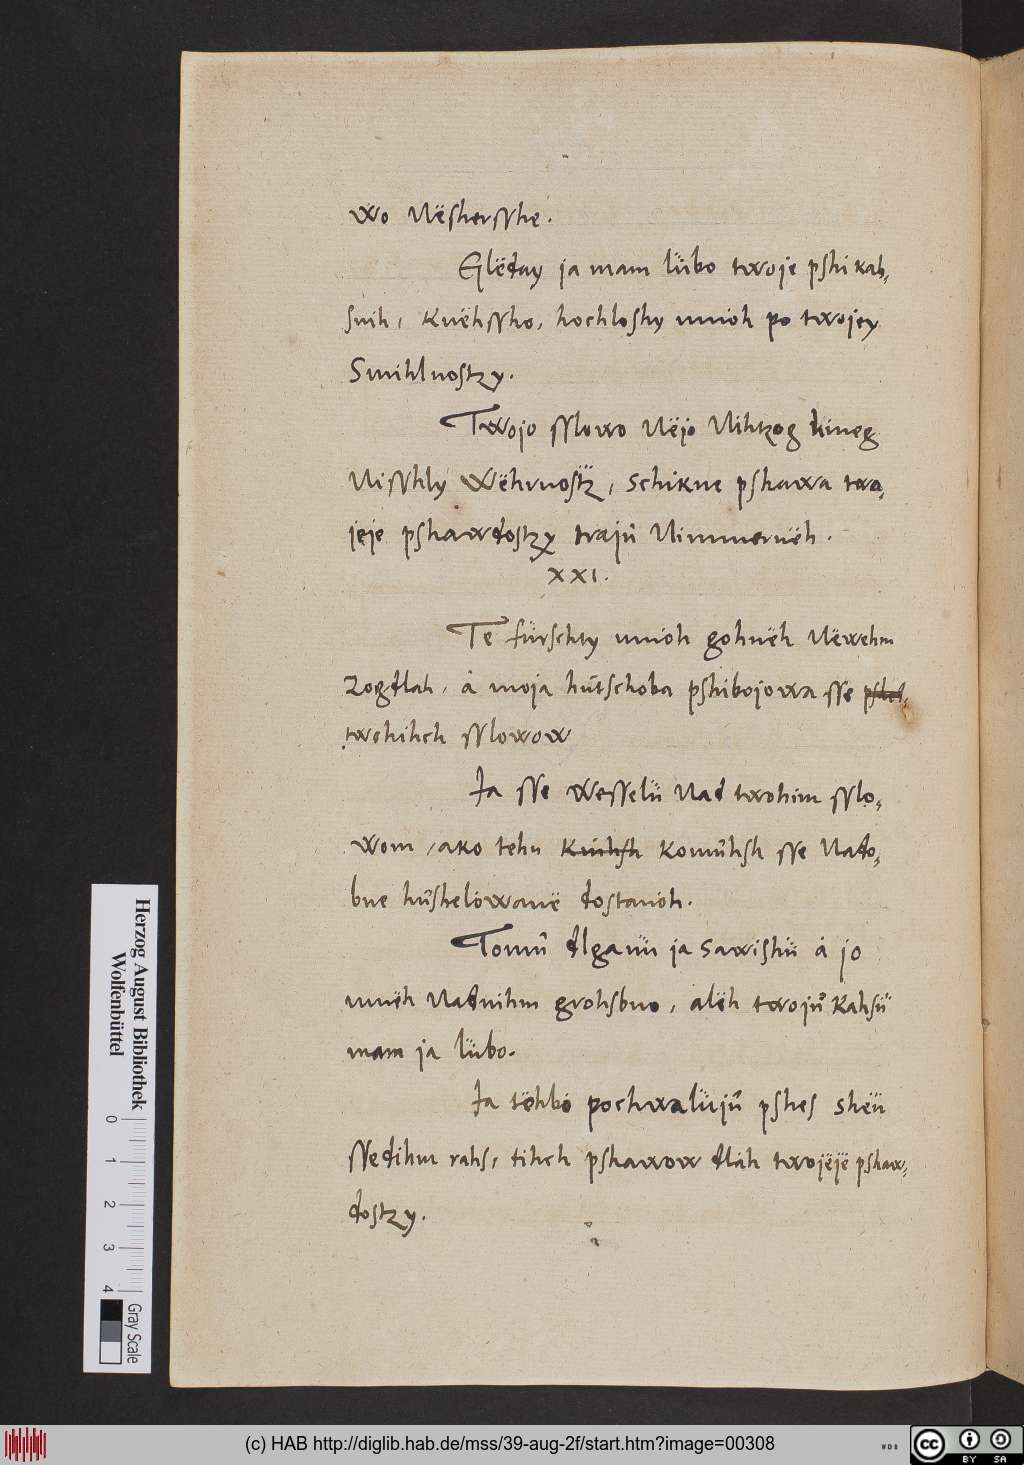 wo Nësherssche.
Glëday ja mam lübo twoje pshikah-
snih, knëhssho, hochloshy mnioh po twojey
Smihlnostzy.
Twojo sslowo Nëjo Nihtzog kineg
Nisshly Wëhrnostz, schikne pshawa two-
jeje pshawdostzy traju Nimmernëh.
XXI.
Te fürschty mnioh gohnëh Nëwehm
Zogdlah, a moja hutschoba pshibojowa sse
twohihch sslowow
Ja sse wesselü Nad twohim sslo-
wom, ako tehn komuhsh sse Nado-
bne hushelowanë dostanoh.
Tomu dlganü ja sawishü a jo
mnëh Nadnihm grohsbno, alëh twoju kahsü
mam ja lübo.
Ja tohbo pochwalüju pshes sheü
ssedihm rahs, tihch pshawow dlah twojëjë pshaw-
dostzy.
Herzog August Bibliothek
Wolfenbüttel
0 1 2 3 4
Gray Scale
(c) HAB http://diglib.hab.de/mss/39-aug-2f/start.htm?image=00308
WDB
cc BY SA